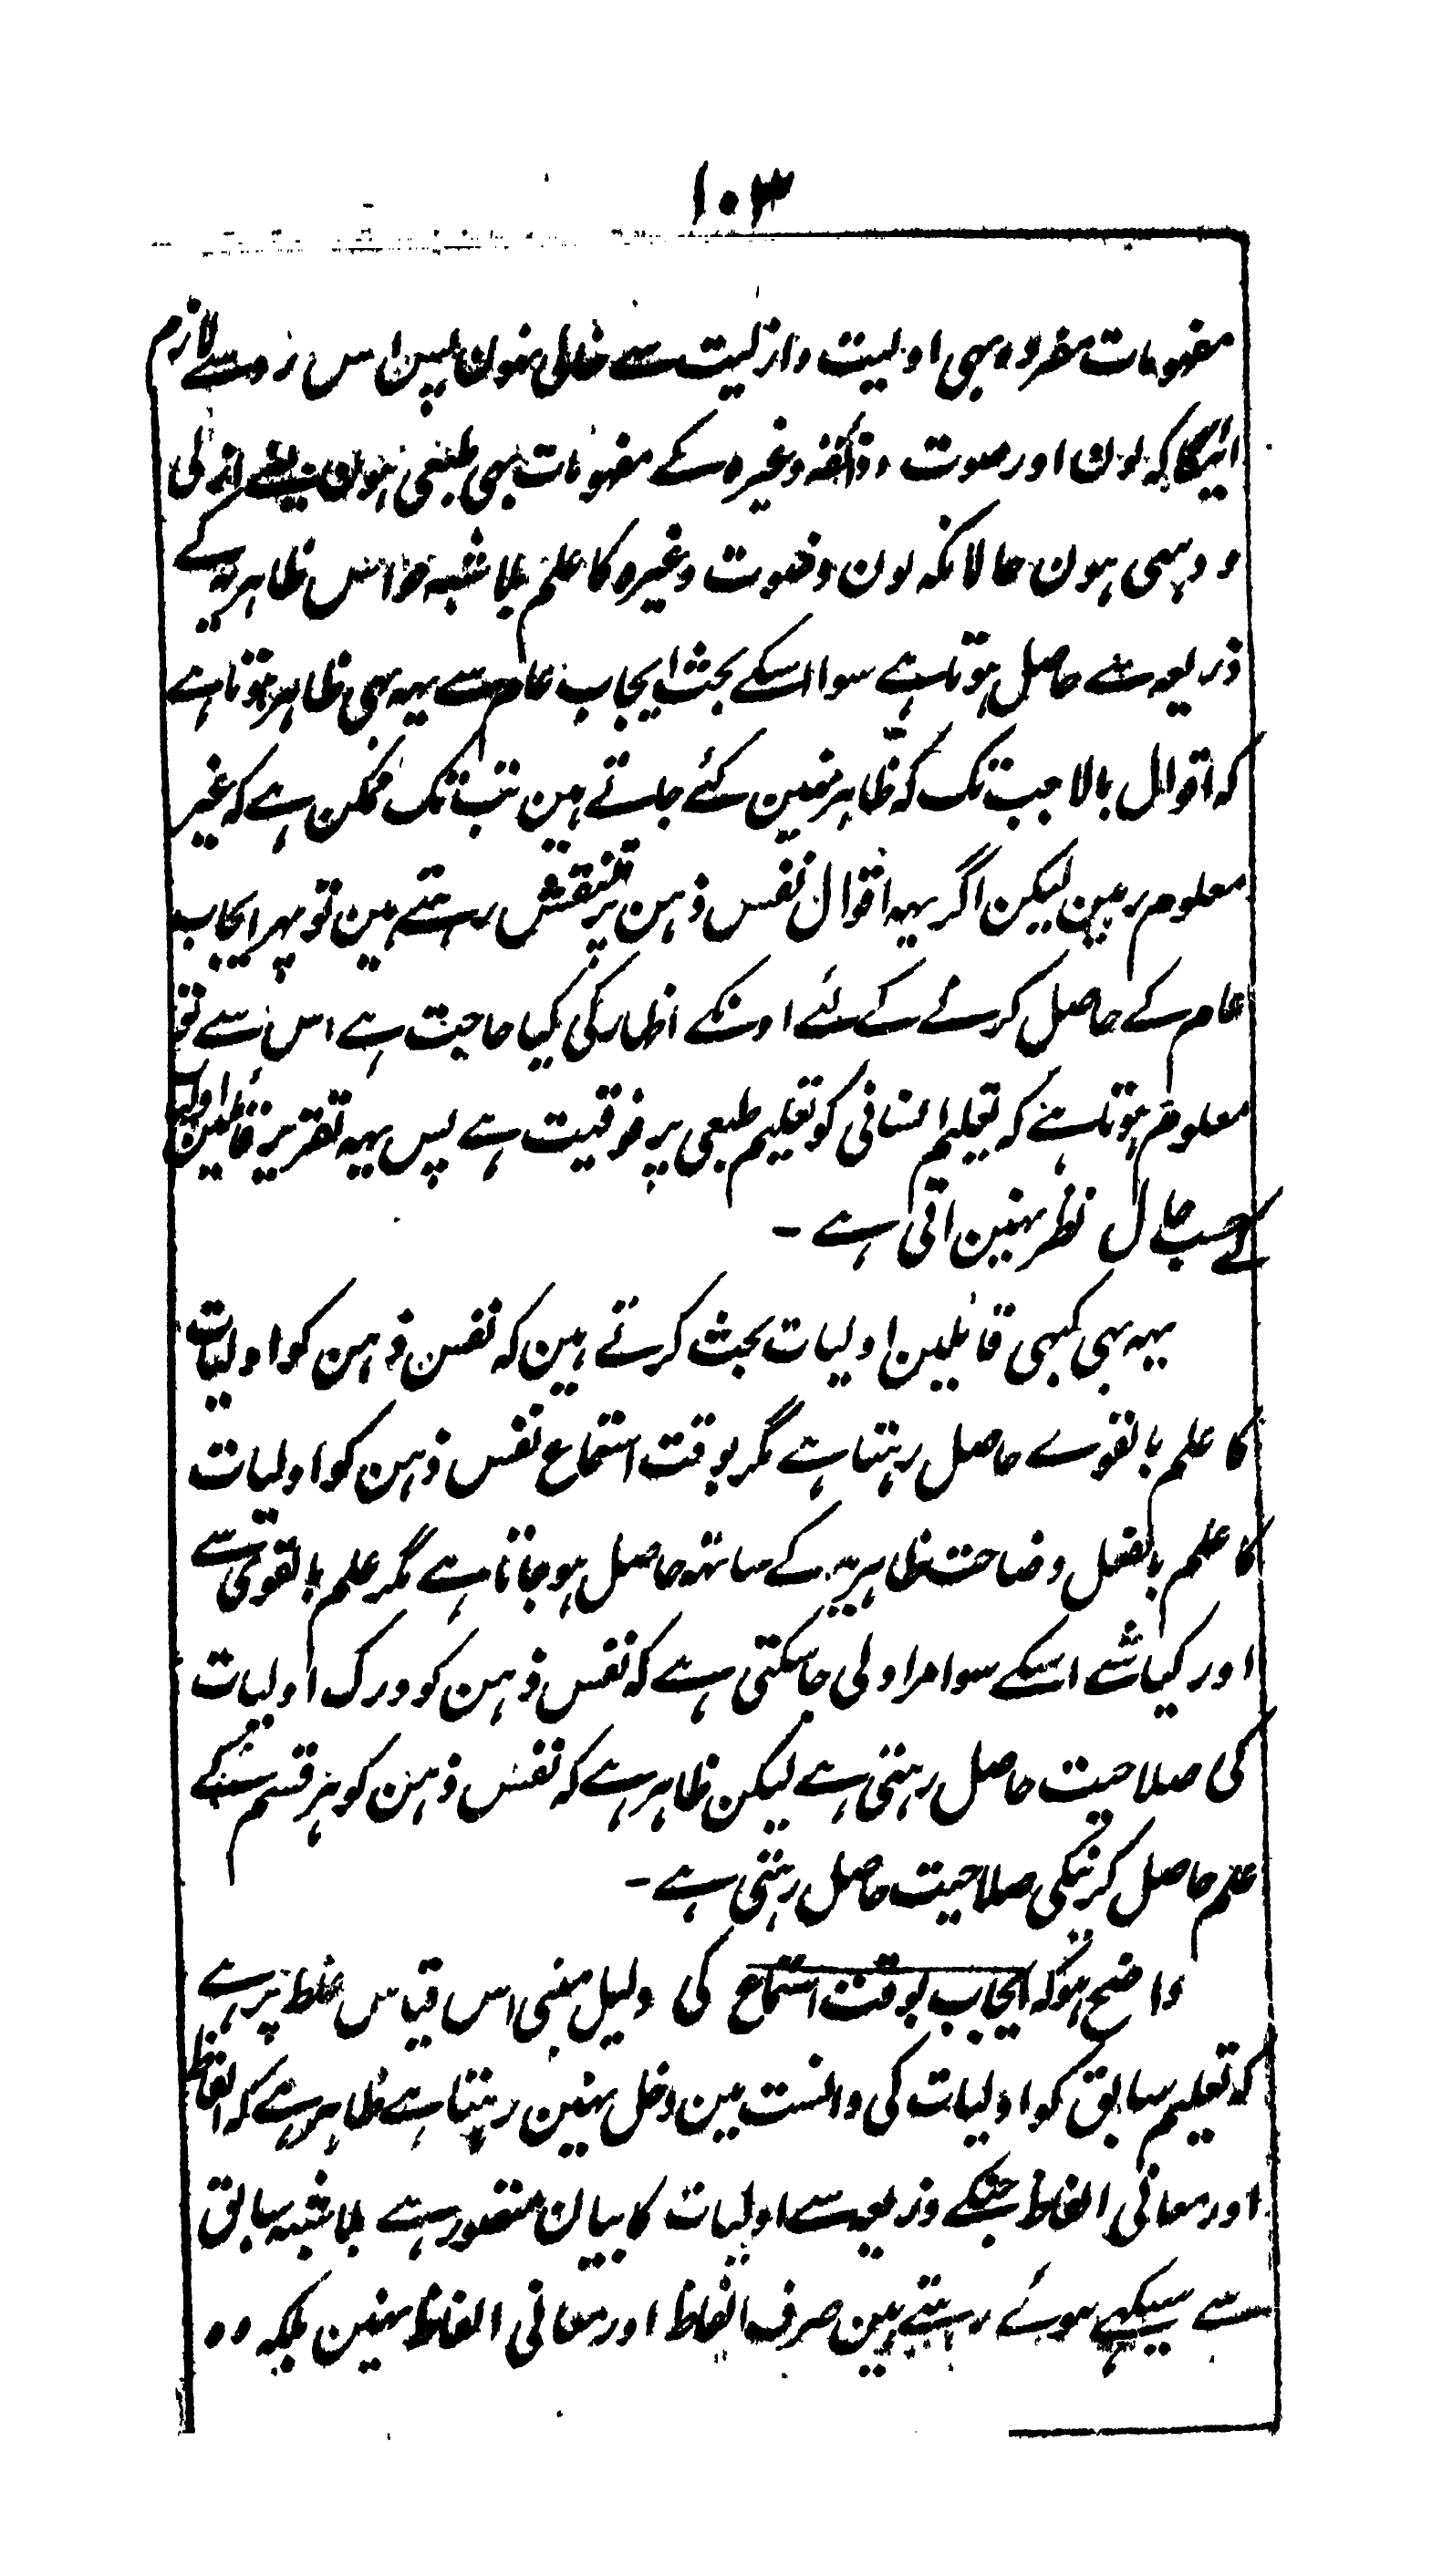 ۱۰۳
مفہومات مفردہ بہی اولیت وازلیت سے خالی نہون پس اس رو سے لازم
ائیگا کہ لون اور صوت وذائقہ وغیرہ کے مفہومات بہی طبعی ہون یعنے ازلی
و وہبی ہون حالانکہ لون وصوت وغیرہ کا علم بلاشبہ حواس ظاہریہ کے
ذریعہ سے حاصل ہوتا ہے سوا اسکے بحث ایجاب عام سے یہہ بہی ظاہر ہوتا ہے
کہ اقوال بالا جب تک کہ ظاہر نہین کئے جاتے ہین تب تک ممکن ہے کہ غیر
معلوم رہین لیکن اگر یہہ اقوال نفس ذہن پر منقش رہتے ہین تو پہر ایجاب
عام کے حاصل کرنے کے لئے اونکے اظہار کی کیا حاجت ہے اس سے تو
معلوم ہوتا ہے کہ تعلیم انسانی کو تعلیم طبعی پر فوقیت ہے پس یہہ تقریر قائلین اولیات
کے حسب حال نظر نہین اتی ہے ۔
یہہ بہی کبہی قائلین اولیات بحث کرتے ہین کہ نفس ذہن کو اولیات
کا علم بالقوے حاصل رہتا ہے مگر بوقت استماع نفس ذہن کو اولیات
کا علم بالفعل وضاحت ظاہریہ کے ساتہہ حاصل ہو جاتا ہے مگر علم بالقوی سے
اور کیا شے اسکے سوا مراد لی جا سکتی ہے کہ نفس ذہن کو درک اولیات
کی صلاحیت حاصل رہتی ہے لیکن ظاہر ہے کہ نفس ذہن کو ہر قسم کے
علم حاصل کرنیکی صلاحیت حاصل رہتی ہے ۔
واضح ہو کہ ایجاب بوقت استماع کی دلیل مبنی اس قیاس غلط پر ہے
کہ تعلیم سابق کو اولیات کی دانست مین دخل نہین رہتا ہے ظاہر ہے کہ الفاظ
اور معانی الفاظ جنکے ذریعہ سے اولیات کا بیان متصور ہے بلاشبہ سابق
سے سیکہے ہوئے رہتے ہین صرف الفاظ اور معانی الفاظ نہین بلکہ وہ